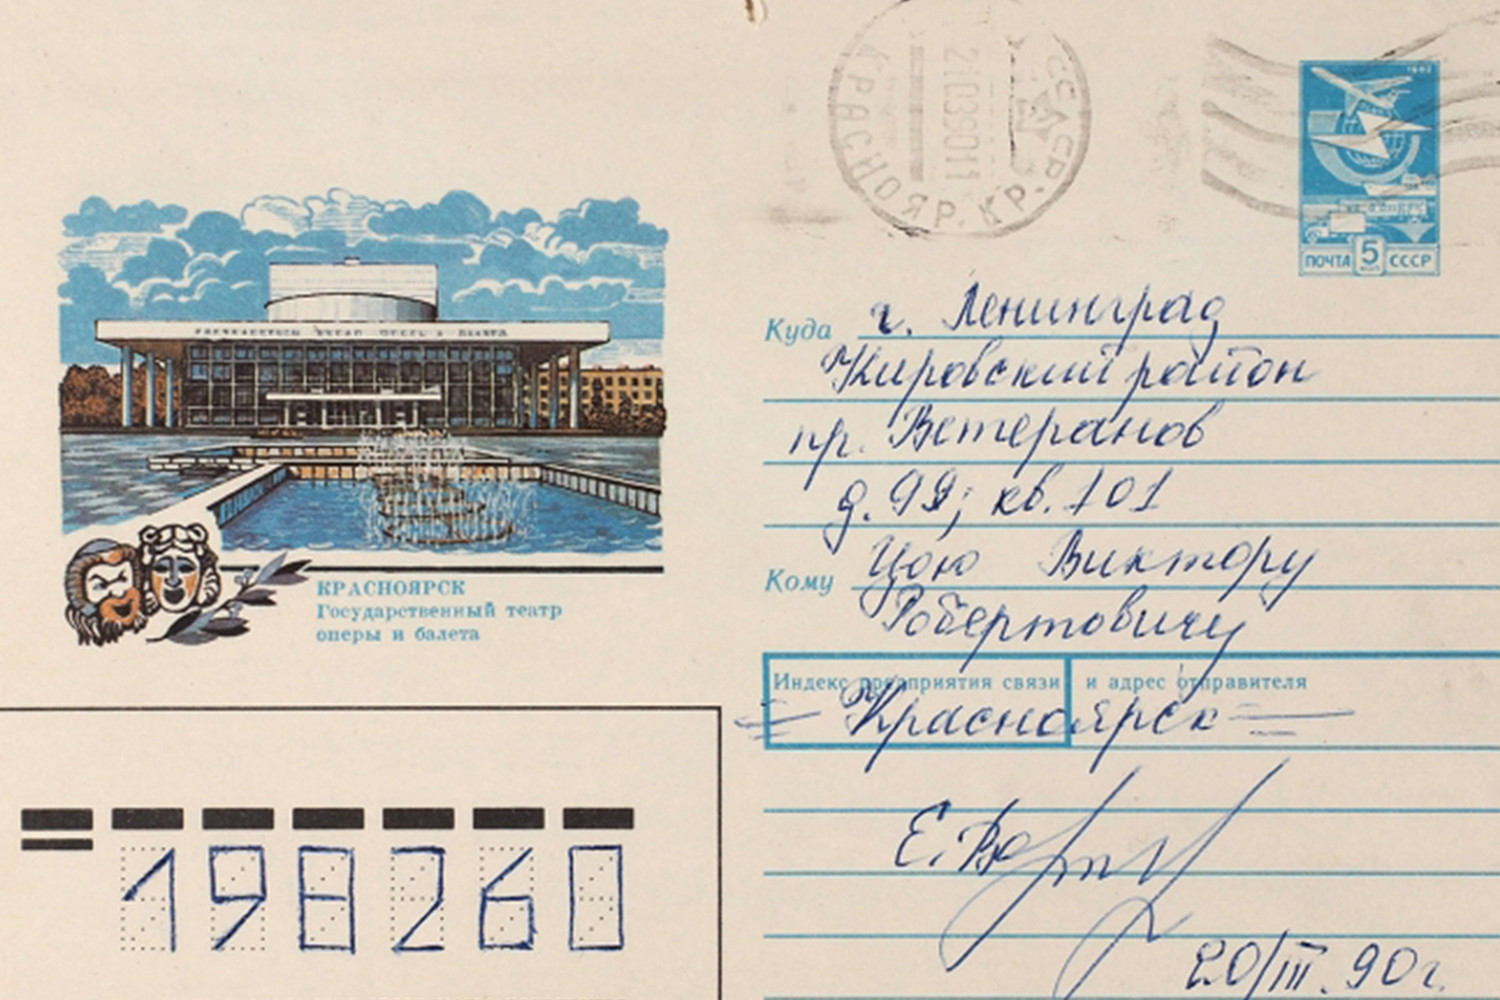 КРАСНОЯР. КР.
РСФСР
21039011
1982
ПОЧТА 5 КОП СССР
ГОСУДАРСТВЕННЫЙ ТЕАТР ОПЕРЫ И БАЛЕТА
КРАСНОЯРСК
Государственный театр
оперы и балета
Куда г. Ленинград
Кировский район
пр. Ветеранов
д. 99; кв. 101
Кому Цою Виктору
Робертовичу
Индекс предприятия связи и адрес отправителя
= Красноярск =
Е.
20/III. 90г.
198260